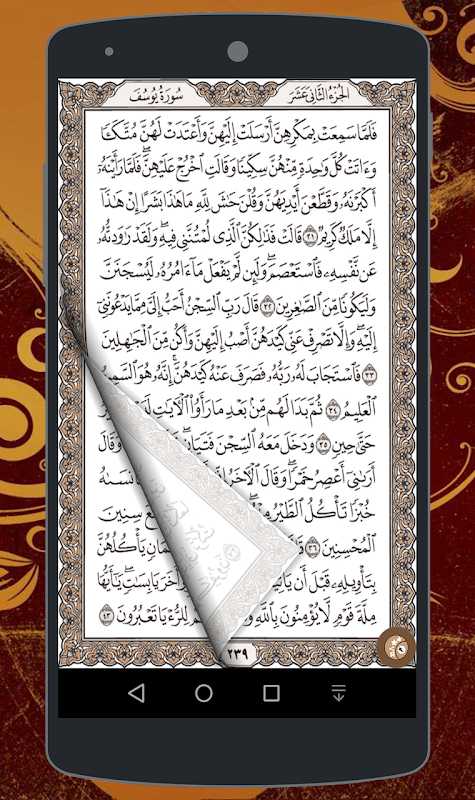 سُورَةُ يُوسُفَ الجُزْءُ الثَّانِي عَشَرَ
فَلَمَّا سَمِعَتْ بِمَكْرِهِنَّ أَرْسَلَتْ إِلَيْهِنَّ وَأَعْتَدَتْ لَهُنَّ مُتَّكَـًٔا
وَءَاتَتْ كُلَّ وَٰحِدَةٍ مِّنْهُنَّ سِكِّينًا وَقَالَتِ ٱخْرُجْ عَلَيْهِنَّ ۖ فَلَمَّا رَأَيْنَهُۥٓ
أَكْبَرْنَهُۥ وَقَطَّعْنَ أَيْدِيَهُنَّ وَقُلْنَ حَٰشَ لِلَّهِ مَا هَٰذَا بَشَرًا إِنْ هَٰذَآ
إِلَّا مَلَكٌ كَرِيمٌ ٣١ قَالَتْ فَذَٰلِكُنَّ ٱلَّذِى لُمْتُنَّنِى فِيهِ ۖ وَلَقَدْ رَٰوَدتُّهُۥ
عَن نَّفْسِهِۦ فَٱسْتَعْصَمَ ۖ وَلَئِن لَّمْ يَفْعَلْ مَآ ءَامُرُهُۥ لَيُسْجَنَنَّ
وَلَيَكُونًا مِّنَ ٱلصَّٰغِرِينَ ٣٢ قَالَ رَبِّ ٱلسِّجْنُ أَحَبُّ إِلَىَّ مِمَّا يَدْعُونَنِىٓ
إِلَيْهِ ۖ وَإِلَّا تَصْرِفْ عَنِّى كَيْدَهُنَّ أَصْبُ إِلَيْهِنَّ وَأَكُن مِّنَ ٱلْجَٰهِلِينَ
٣٣ فَٱسْتَجَابَ لَهُۥ رَبُّهُۥ فَصَرَفَ عَنْهُ كَيْدَهُنَّ ۚ إِنَّهُۥ هُوَ ٱلسَّمِيعُ
ٱلْعَلِيمُ ٣٤ ثُمَّ بَدَا لَهُم مِّنۢ بَعْدِ مَا رَأَوُا۟ ٱلْءَايَٰتِ
حَتَّىٰ حِينٍ ٣٥ وَدَخَلَ مَعَهُ ٱلسِّجْنَ فَتَيَانِ ۖ وَقَالَ
أَرَىٰنِىٓ أَعْصِرُ خَمْرًا ۖ وَقَالَ ٱلْءَاخَرُ
خُبْزًا تَأْكُلُ ٱلطَّيْرُ سِنِينَ
ٱلْمُحْسِنِينَ ٣٦ يَأْكُلُهُنَّ
بِتَأْوِيلِهِۦ قَبْلَ أَن يَابِسَٰتٍ ۖ يَٰٓأَيُّهَا
مِلَّةَ قَوْمٍ لَّا يُؤْمِنُونَ بِٱللَّهِ لِلرُّءْيَا تَعْبُرُونَ ٤٣
٢٣٩